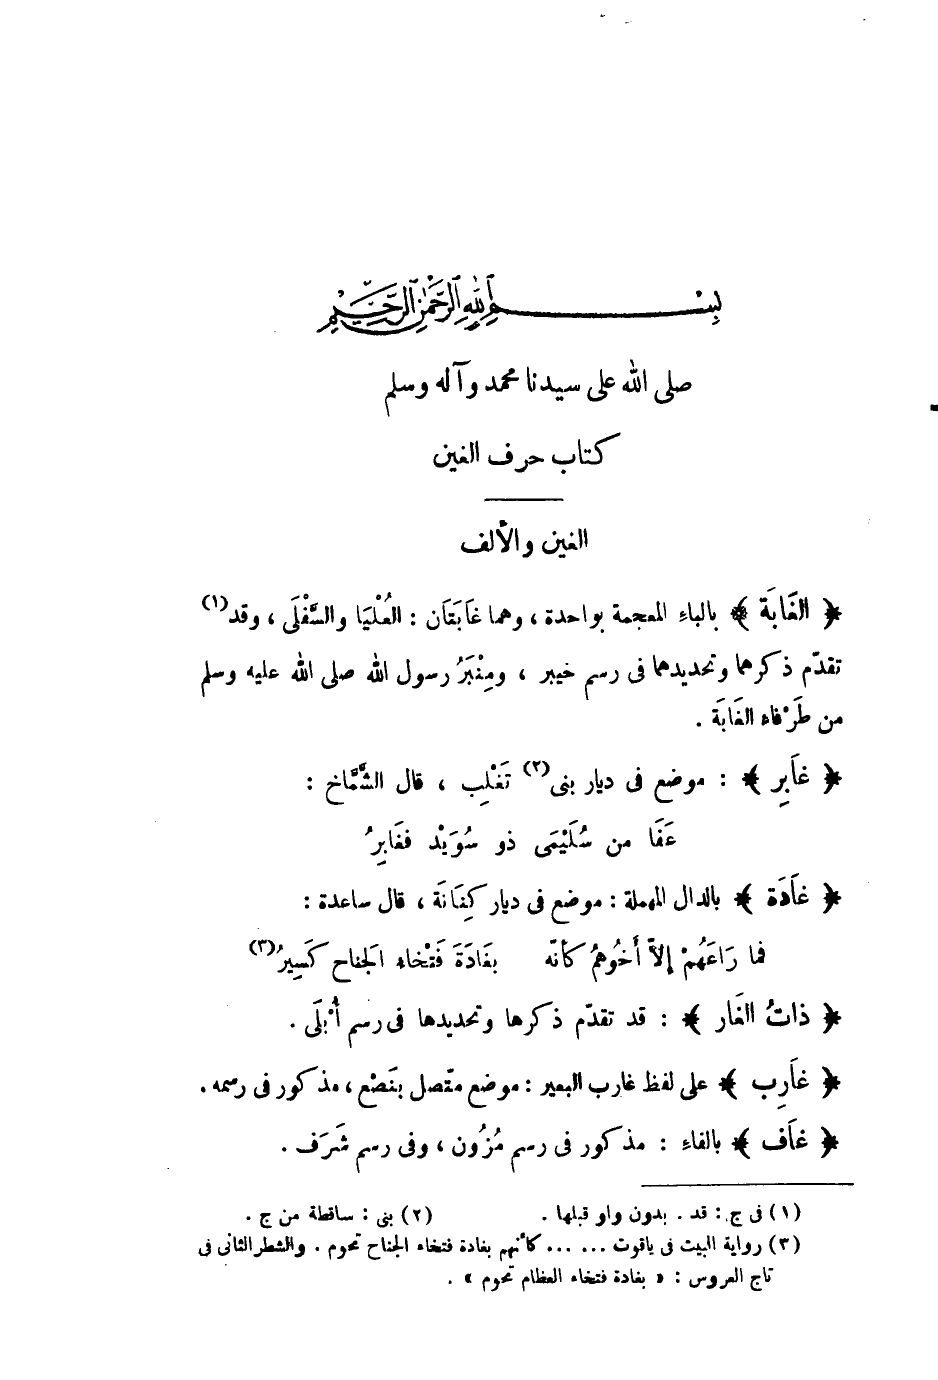 بِسْمِ ٱللَّهِ ٱلرَّحْمَٰنِ ٱلرَّحِيمِ
صلى الله على سيدنا محمد وآله وسلم
كتاب حرف الغين
الغين والألف
﴿ الغَابَة ﴾ بالباءِ المعجمة بواحدة ، وهما غَابَتَان : العُلْيَا والسُّفْلَى ، وقد(١)
تقدّم ذكرهما وتحديدهما فى رسم خيبر ، ومِنْبَرُ رسول الله صلى الله عليه وسلم
من طَرْفاء الغَابَة .
﴿ غاَبِر ﴾ : موضع فى ديار بنى(٢) تَغْلِب ، قال الشَّمَّاخ :
عَفَا من سُلَيْمَى ذو سُوَيْد فغَابِرُ
﴿ غاَدَة ﴾ بالدال المهملة : موضع فى ديار كِنَانَة ، قال ساعدة :
فما رَاعَهُمْ إلاّ أَخُوهُمْ كأنّه بغَادَةَ فَتْخاء الجَناح كَسِيرُ(٣)
﴿ ذاتُ الغَار ﴾ : قد تقدّم ذكرها وتحديدها فى رسم أُبْلَى .
﴿ غاَرِب ﴾ على لفظ غارب البعير : موضع متّصل بنَصْع ، مذكور فى رسمه .
﴿ غاَف ﴾ بالفاءِ : مذكور فى رسم مُزُون ، وفى رسم شَرَف .
(١) فى ج : قد . بدون واو قبلها . (٢) بنى : ساقطة من ج .
(٣) رواية البيت فى ياقوت ... ... كأنهم بغادة فتخاء الجناح تحوم . والشطر الثانى فى
تاج العروس : « بغادة فتخاء العظام تحوم » .